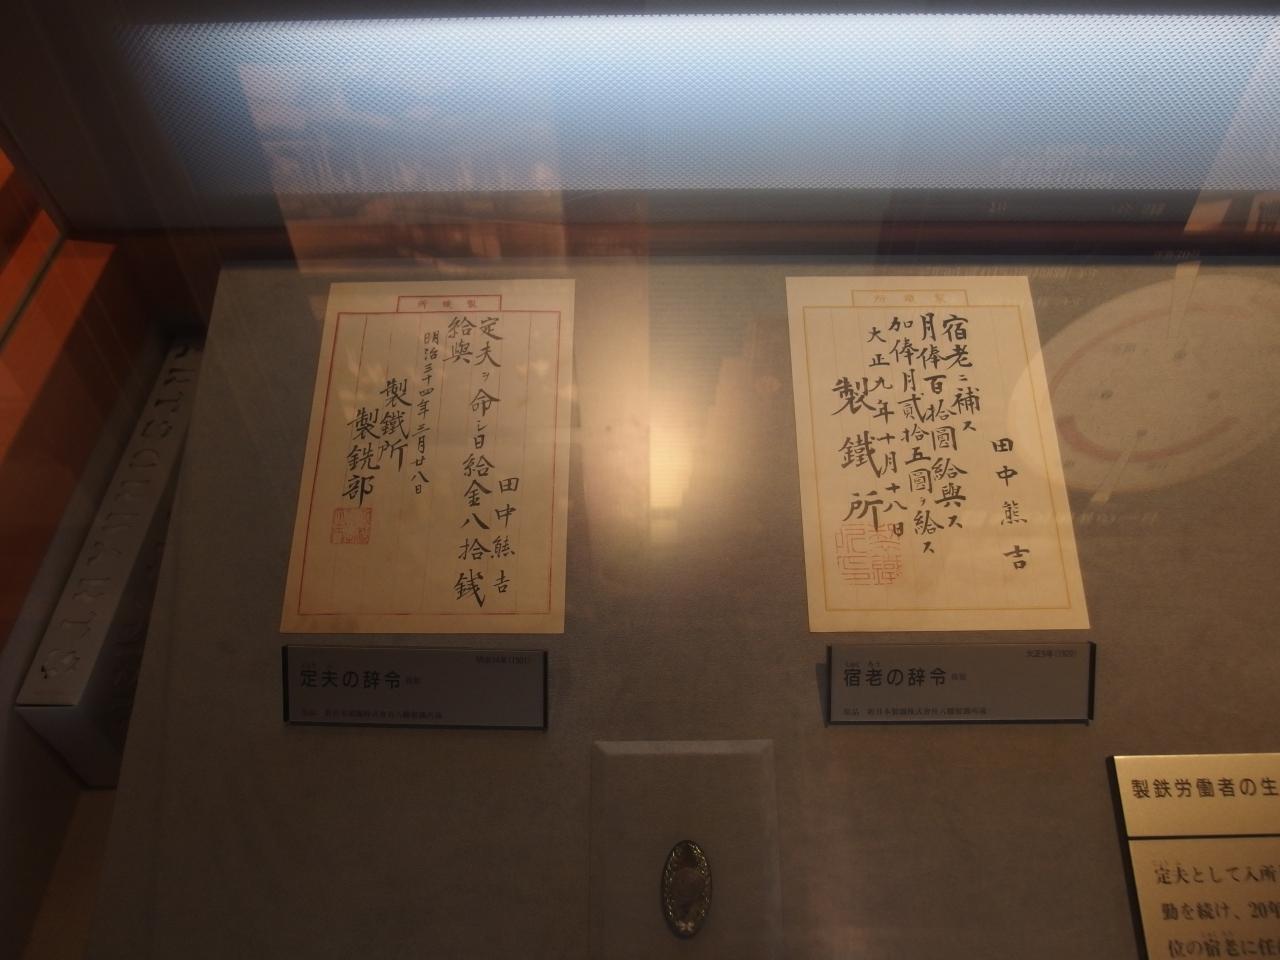 製鐵所
田中熊吉
定夫ヲ命シ日給金八拾錢
給與
明治三十四年三月廿八日
製鐵所
製銑部
製鐵所
田中熊吉
宿老ニ補ス
月俸百拾圓給與ス
加俸月貳拾五圓ヲ給ス
大正九年十月十八日
製鐵所
明治34年(1901)
定夫の辞令 複製
大正9年(1920)
しゅく ろう
宿老の辞令 複製
原品 新日本製鐵株式會社八幡製鐵所蔵
製鉄労働者の生
定夫として入所
勤を続け、20年
位の宿老に任